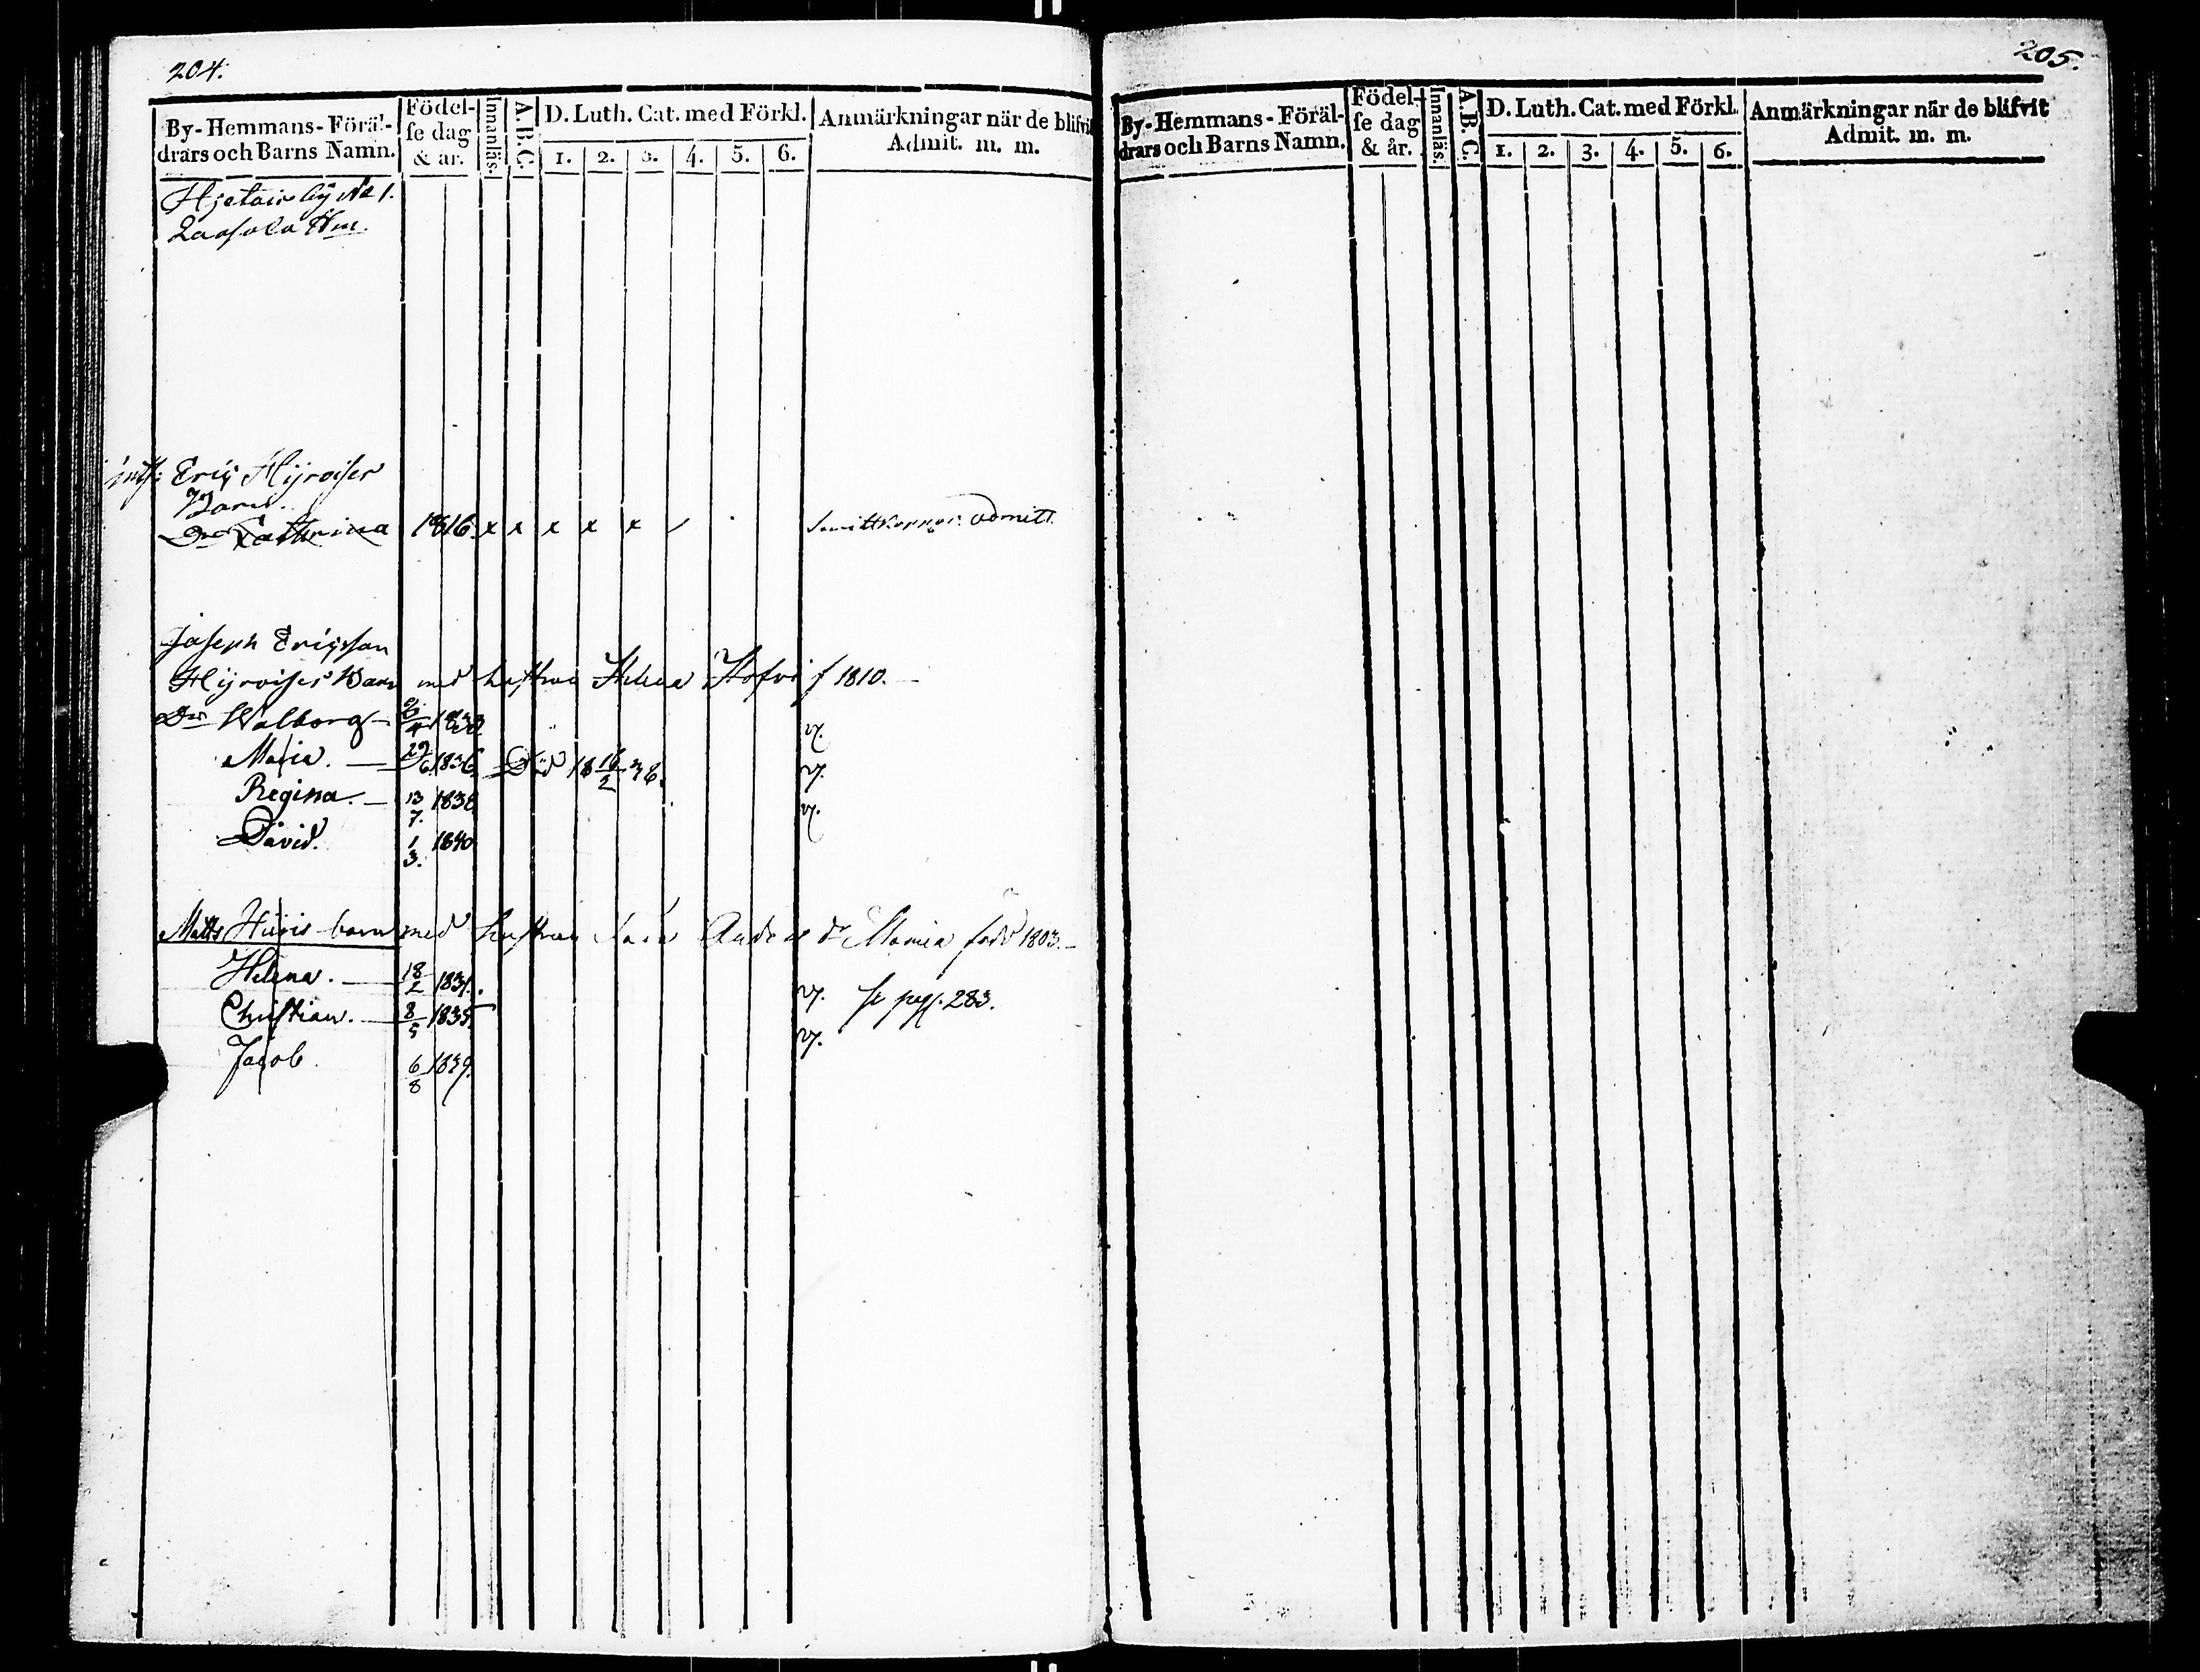 204.
By-Hemmans-Föräl-
drars och Barns Namn.
Födel-
se dag
& år.
Innanläs.
A.B.C.
D. Luth. Cat. med Förkl.
1. 2. 3. 4. 5. 6.
Anmärkningar när de blifvit
Admit. m. m.
by No 1.
Hm.
Eric Hyroiser
Barn.
Dr Cathrina 1816. x x x x x admitt.
Joseph Ericsson
Hyroiser Barn med hustrun Helena f 1810. —
Dr Walborg — 1833
Maria. — 29/6 1836. Död 18 16/2 38.
Regina. — 13/7. 1838
David. 1/3. 1840
Matts barn med hustrun Anders dr Maria född 1803. —
Helena. — 18/2 1831.
Christian. — 8/5 1835
se pag. 283.
Jacob. 6/8 1839.
205.
By-Hemmans-Föräl-
drars och Barns Namn.
Födel-
se dag
& år.
Innanläs.
A.B.C.
D. Luth. Cat. med Förkl.
1. 2. 3. 4. 5. 6.
Anmärkningar när de blifvit
Admit. m. m.